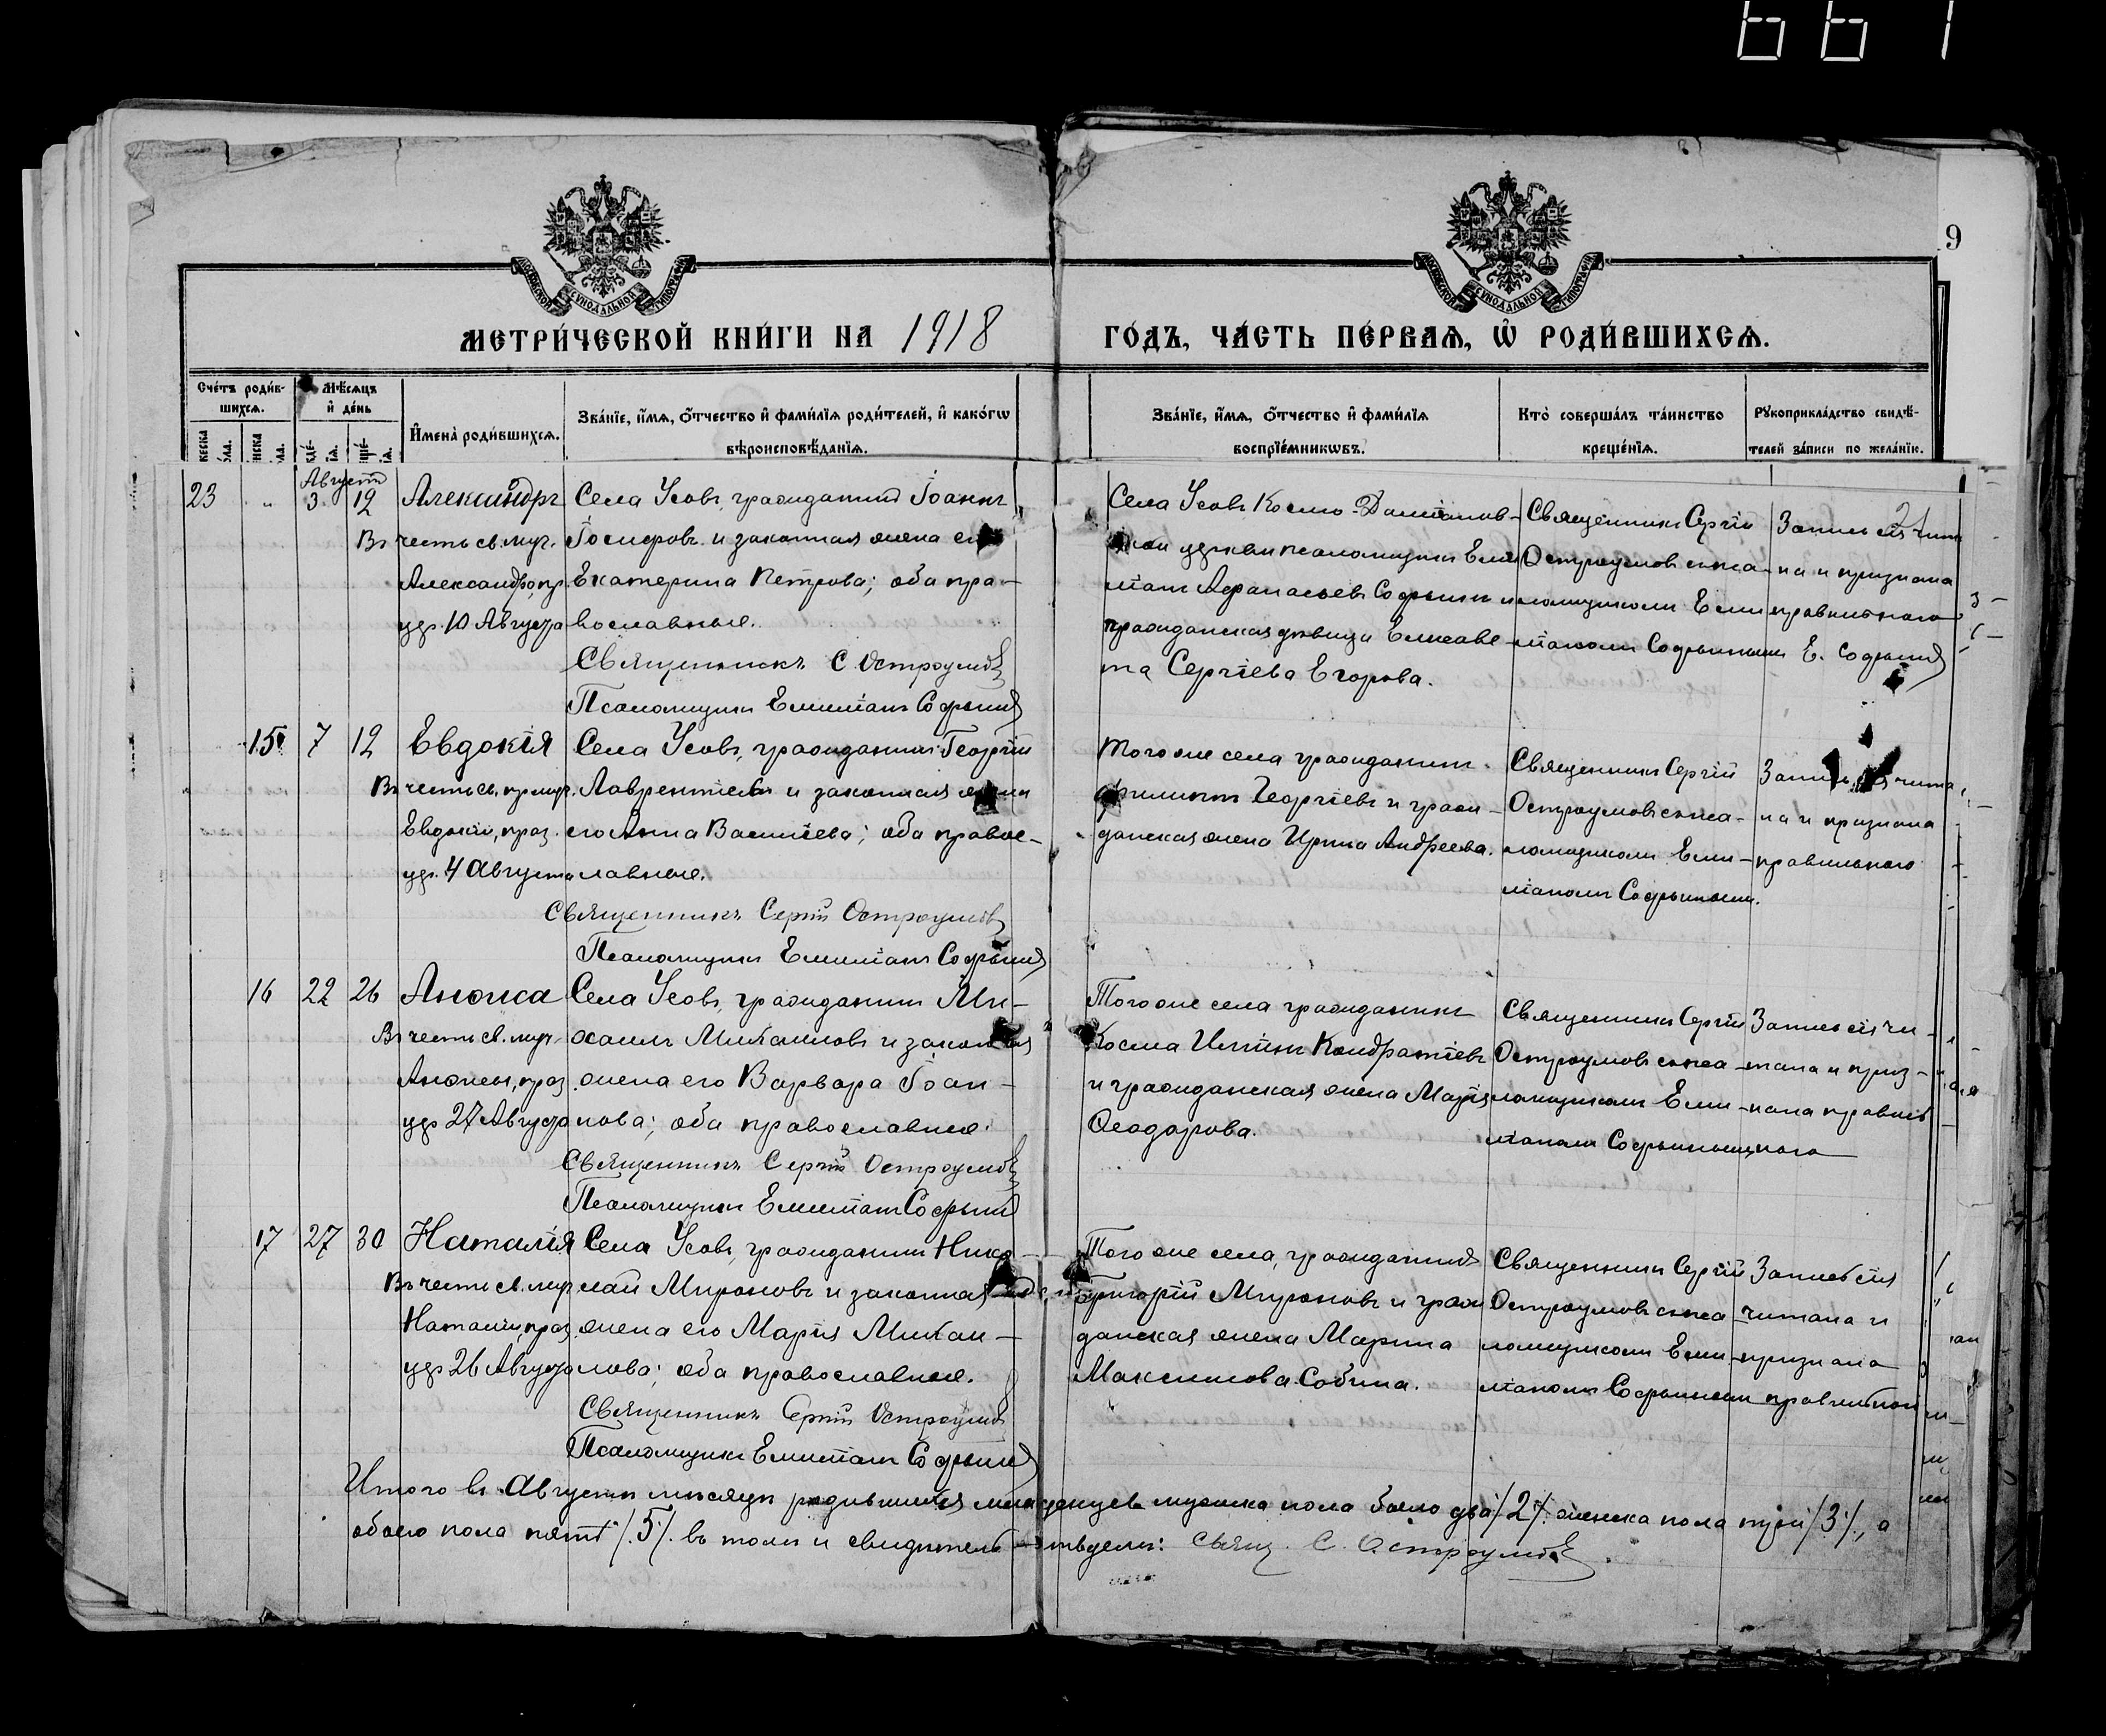 661
9
МОСКОВСКОЙ СУНОДАЛЬНОЙ ТИПОГРАФІИ
МОСКОВСКОЙ СУНОДАЛЬНОЙ ТИПОГРАФІИ
МЕТРИ́ЧЕСКОЙ КНИ́ГИ НА 1918 ГО́ДЪ, ЧА́СТЬ ПЕ́РВАѦ, Ѡ҆ РОДИ́ВШИХСѦ.
Сче́тъ роди́в-
шихсѧ.
Мѣ́сѧцъ
и҆ де́нь
И҆мена̀ роди́вшихсѧ.
Зва́нїе, и҆́мѧ, ѻ҆́тчество и҆ фами́лїѧ роди́телей, и҆ како́гѡ
вѣроисповѣ́данїѧ.
Зва́нїе, и҆́мѧ, ѻ҆́тчество и҆ фами́лїѧ
воспрїе́мникѡвъ.
Кто̀ соверша́лъ та́инство
креще́нїѧ.
Рꙋкоприкла́дство свидѣ́-
телей за́писи по жела́нїю.
Августъ
23 " 3 12 Александръ
Въ честь св. муч.
Александра, пр.
удр. 10 Августа
Села Усовъ, гражданинъ Іоаннъ
и законная жена его
Екатерина Петрова; оба пра-
вославные.
Священникъ С. Остроумовъ
Псаломщикъ Емиліанъ Софьинъ
Села Усовъ Космо-Даміанов-
ской церкви псаломщикъ Еми
ліанъ Аѳанасьевъ Софьинъ и
гражданская дѣвица Елисаве-
та Сергіева Егорова.
Священникъ Сергій
Остроумовъ съ пса-
ломщикомъ Еми
ліаномъ Софьинымъ
Запись сія чита
на и признана
правильною
Е. Софьинъ
15 7 12 Евдокія
Въ честь св. пр. муч.
Евдокіи, праз.
удр. 4 Августа
Села Усовъ, гражданинъ Георгій
Лаврентіевъ и законная жена
его Анна Васильева; оба правос-
лавные.
Священникъ Сергій Остроумовъ
Псаломщикъ Емиліанъ Софьинъ
Того же села гражданинъ
Филиппъ Георгіевъ и граж-
данская жена Ирина Андреева.
Священникъ Сергій
Остроумовъ съ пса-
ломщикомъ Еми-
ліаномъ Софьинымъ.
Запись сія чита
на и признана
правильною
16 22 26 Анѳиса
Въ честь св. муч.
Анѳисы, праз.
удр 27 Августа
Села Усовъ, гражданинъ Ми-
хаилъ Михаиловъ и законная
жена его Варвара Іоан-
нова; оба православные.
Священникъ Сергій Остроумовъ
Псаломщикъ Емиліанъ Софьинъ
Того же села гражданинъ
Косма Кондратіевъ
и гражданская жена Марія
Ѳеодорова.
Священникъ Сергій
Остроумовъ съ пса
ломщикомъ Еми-
ліаномъ Софьинымъ
Запись сія чи-
тана и приз-
нана правиль
ною
17 27 30 Наталія
Въ честь св. муч
Наталіи, праз.
удр 26 Августа
Села Усовъ, гражданинъ Нико-
лай Мироновъ и законная
жена его Марія Михаи-
лова; оба православные.
Священникъ Сергій Остроумовъ
Псаломщикъ Емиліанъ Софьинъ
Того же села, гражданинъ
Григорій Мироновъ и граж
данская жена Марина
Максимова Собина.
Священникъ Сергій
Остроумовъ съ пса
ломщикомъ Еми-
ліаномъ Софьинымъ
Запись сія
читана и
признана
правильной
Итого въ Августѣ мѣсяцѣ родившихся младенцевъ мужска пола было два /2/. женска пола три /3/, а
обоего пола пять /5/. въ томъ и свидѣтельствуемъ: Свящ. С. Остроумовъ.